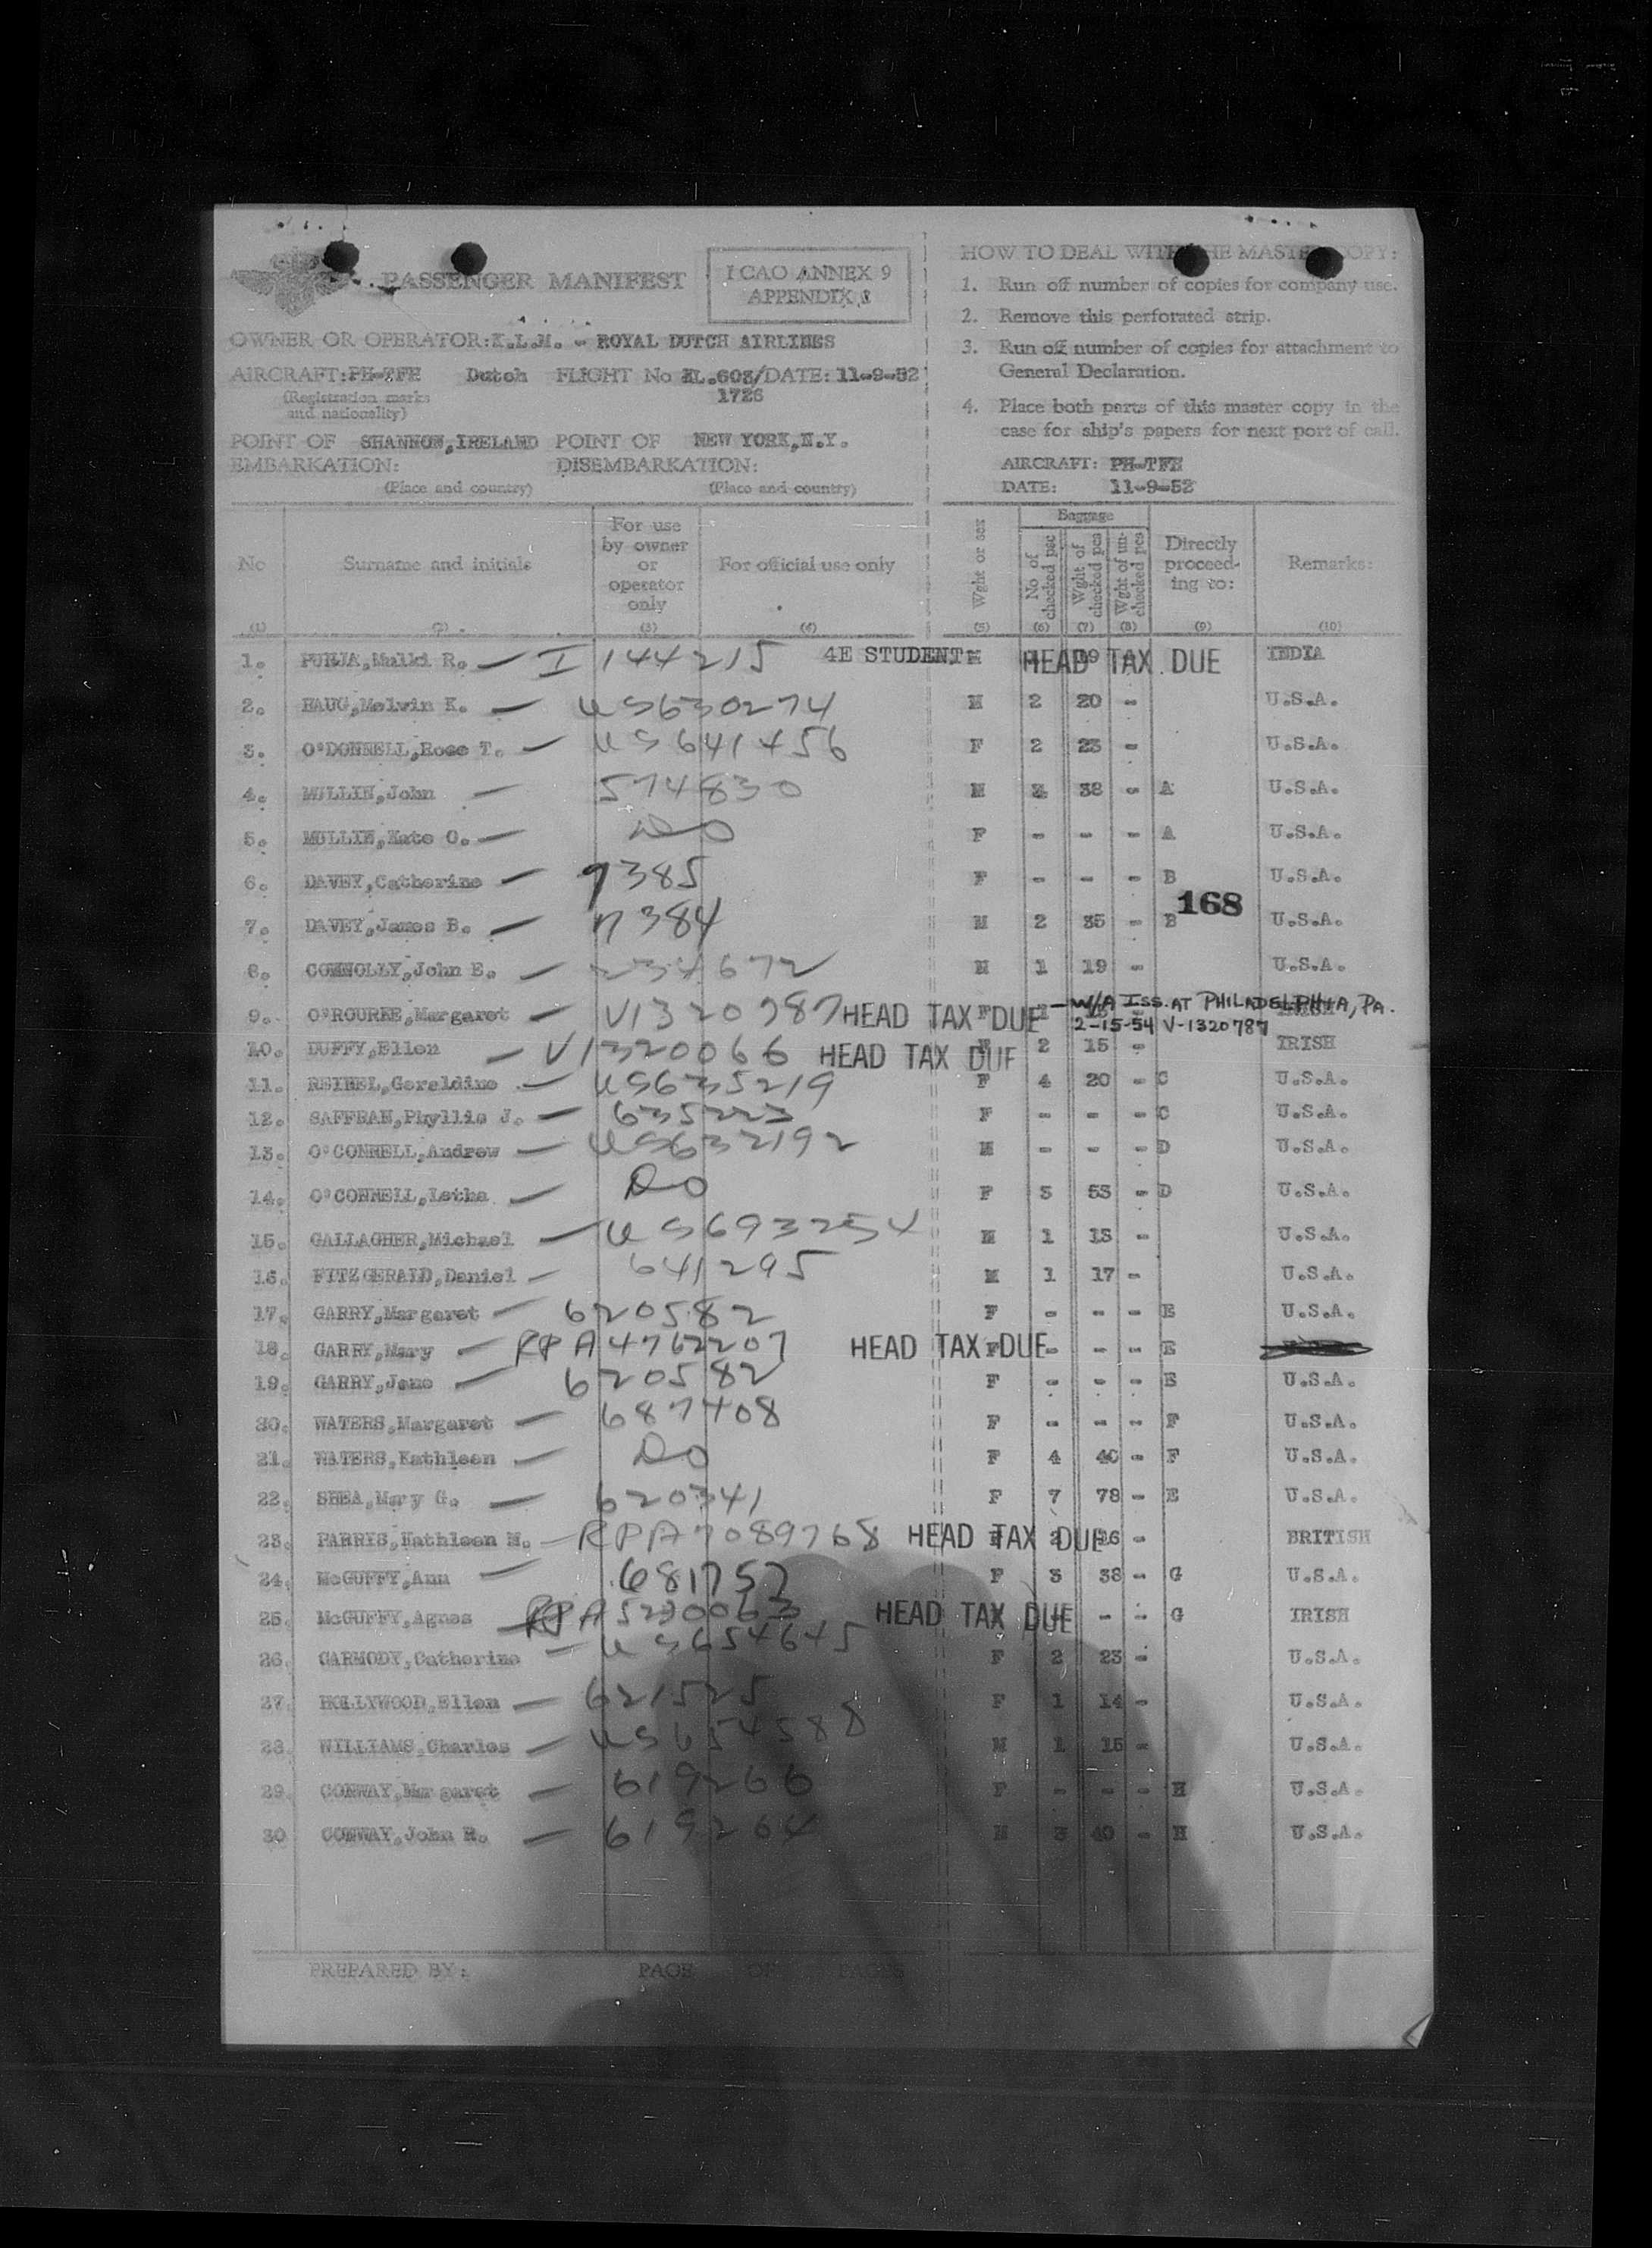 PASSENGER MANIFEST
I CAO ANNEX 9
APPENDIX
OWNER OR OPERATOR: K.L.M. - ROYAL DUTCH AIRLINES
AIRCRAFT: PH-TFE Dutch FLIGHT No KL.603/ DATE: 11-9-52
(Registration marks
and nationality)
POINT OF SHANNON, IRELAND POINT OF NEW YORK, N.Y.
EMBARKATION: DISEMBARKATION:
(Place and country) (Place and country)
HOW TO DEAL WITH THE MASTER COPY:
1. Run off number of copies for company use.
2. Remove this perforated strip.
3. Run off number of copies for attachment to
General Declaration.
4. Place both parts of this master copy in the
case for ship's papers for next port of call.
AIRCRAFT: PH-TFE
DATE: 11-9-52
No Surname and initials For use by owner or operator only For official use only Wght or sex Baggage No of checked pcs Wght of checked pcs Wght of un-checked pcs Directly proceed-ing to: Remarks:
(1) (2) (3) (4) (5) (6) (7) (8) (9) (10)
1. Mulki R. - I 144215 4E STUDENT HEAD TAX DUE INDIA
2. HAUG, Melvin K. - US630274 M 2 20 - U.S.A.
3. O'DONNELL, Rose T. - US641456 F 2 23 - U.S.A.
4. MULLIN, John - 574830 M 38 - A U.S.A.
5. MULLIN, Kate C. - Do F - - - A U.S.A.
6. DAVEY, Catherine - 7385 F - - - B U.S.A.
168
7. DAVEY, James B. - 7384 M 2 35 - B U.S.A.
8. CONNOLLY, John E. - M 1 19 - U.S.A.
9. O'ROURKE, Margaret - V1320787 HEAD TAX DUE - W/A ISS. AT PHILADELPHIA, PA.
2-15-54 V-1320787
10. DUFFY, Ellen - V1320066 HEAD TAX DUE 2 15 - IRISH
11. REIBEL, Geraldine - US635219 F 4 20 - C U.S.A.
12. SAFFRAN, Phyllis J. - 635223 F - - - C U.S.A.
13. O'CONNELL, Andrew - US632192 M - - - D U.S.A.
14. O'CONNELL, Letha - Do F 3 53 - D U.S.A.
15. GALLAGHER, Michael - US693254 M 1 13 - U.S.A.
16. FITZGERALD, Daniel - 641295 M 1 17 - U.S.A.
17. GARRY, Margaret - 620582 F - - - E U.S.A.
18. GARRY, Mary - RPA 4762207 HEAD TAX DUE F - - - E
19. GARRY, Jane - 620582 F - - - E U.S.A.
20. WATERS, Margaret - 687408 F - - - F U.S.A.
21. WATERS, Kathleen - Do F 4 40 - F U.S.A.
22. SHEA, Mary G. - 620341 F 7 78 - E U.S.A.
23. Kathleen M. - RPA7089768 HEAD TAX DUE 2 26 - BRITISH
24. McGUFFY, Ann - 681757 F 3 38 - G U.S.A.
25. McGUFFY, Agnes - RPA HEAD TAX DUE - - G IRISH
26. CARMODY, Catherine - US654645 F 2 23 - U.S.A.
27. HOLLYWOOD, Ellen - 621525 F 1 14 - U.S.A.
28. WILLIAMS, Charles - US654588 M 1 15 - U.S.A.
29. CONWAY, Margaret - 619266 F - - - H U.S.A.
30 CONWAY, John R. - 619264 M 3 40 - H U.S.A.
PREPARED BY: PAGE OF PAGES